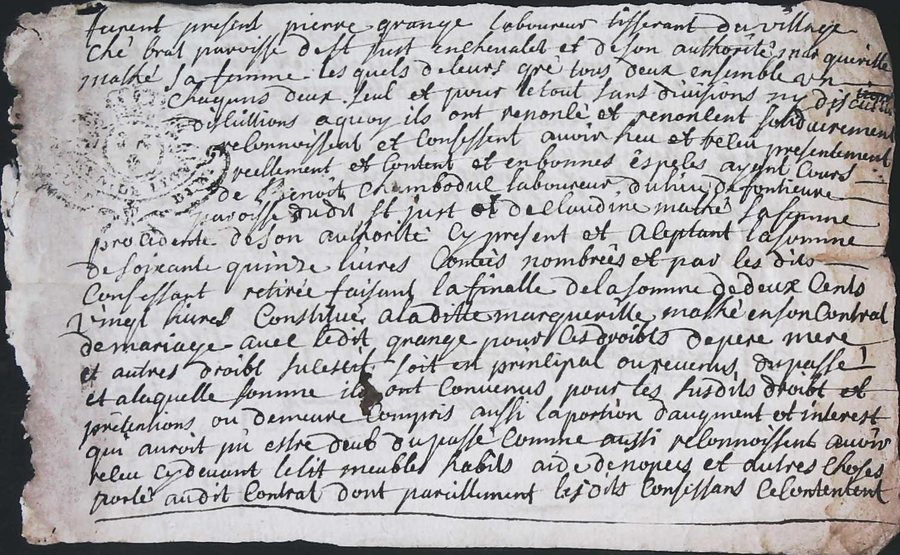 furent present pierre grange laboureur tisserant du village
Ché brat paroisse de st just enchevalet et de son authorité marguerille
mathé sa femme lesquels de leurs gré tous deux ensemble un
chaquns deux seul et pour le tout sans divisions ny
distultions aquoy ils ont renonlé et renonlent solidairement
relonnoissent et Confessent avoir heu et relu presentement
reellement et Content et en bonnes espeles ayent Cours
de Benoit Chambodul laboureur du lieu de fonlieure
paroisse dudit st just et de Claudine mathé sa femme
procedente de son authorité Cy present et aleptant la somme
de soixante quinze livres Contéés nombréés et par les dits
Confessant retirée faisant la finalle de la somme de deux Cents
vingt livres Constitué a la ditte marguerille mathé en son Contrat
de mariage avec ledit grange pour les droibts de pere mere
et autres droibt sulessif soit en prinlipal ou revenus du passé
et a laquelle somme ils ont Convenus pour les susdits droibt et
prétentions ou demeure Compris aussi la portion d'augment et interest
qui auroit pû estre deub du passé Comme aussi relonnoissent avoir
releu Cy devant lelit meubles habits aide denopces et autres Choses
porté audit Contrat dont pareillement lesdits Confessans Ce Contentent